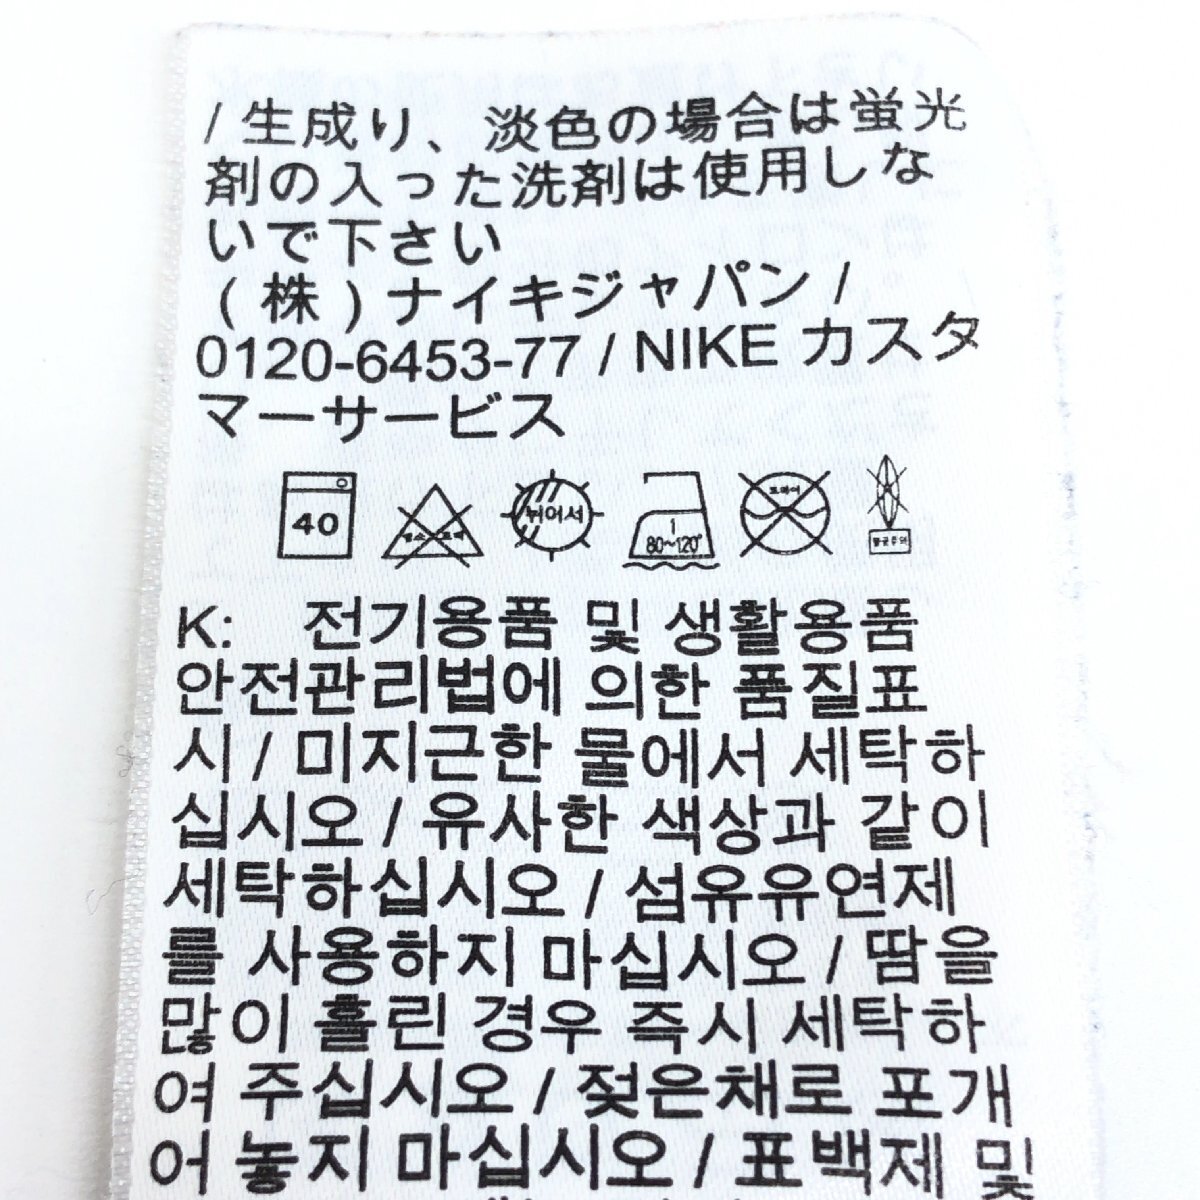 / 生成り、淡色の場合は蛍光
剤の入った洗剤は使用しな
いで下さい
(株)ナイキジャパン /
0120-6453-77 / NIKE カスタ
マーサービス
40 염소 표백 뉘어서 1 80~120° 드라이
K: 전기용품 및 생활용품
안전관리법에 의한 품질표
시 / 미지근한 물에서 세탁하
십시오 / 유사한 색상과 같이
세탁하십시오 / 섬유유연제
를 사용하지 마십시오 / 땀을
많이 흘린 경우 즉시 세탁하
여 주십시오 / 젖은채로 포개
어 놓지 마십시오 / 표백제 및